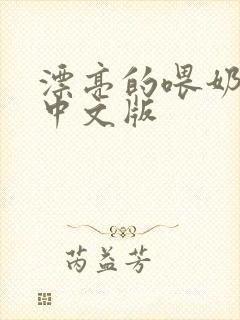 漂亮的喂奶
中文版
芮益芳